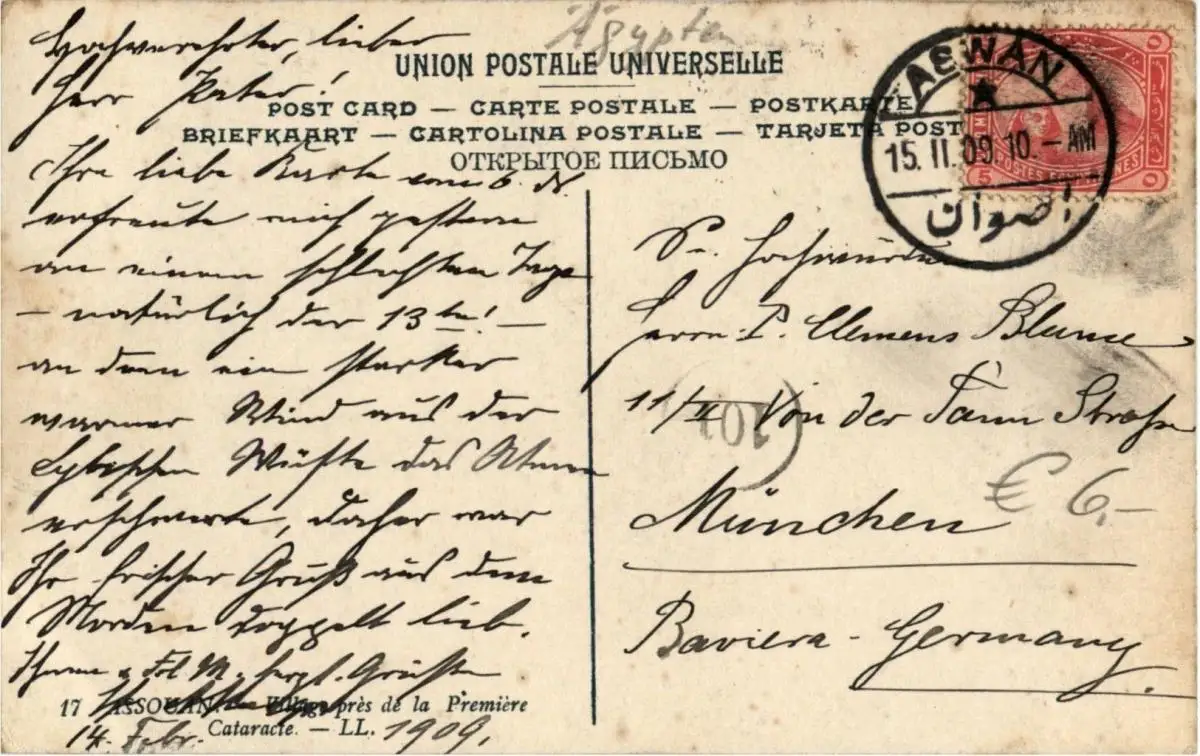 Ägypten
UNION POSTALE UNIVERSELLE
POST CARD — CARTE POSTALE — POSTKARTE
BRIEFKAART — CARTOLINA POSTALE — TARJETA POST
ОТКРЫТОЕ ПИСЬМО
Hochverehrter, lieber
Herr Pater!
Ihre liebe Karte vom 6. ds
erfreute mich gestern
an einem schlechten Tage
– natürlich der 13te! –
an dem ein starker
warmer Wind aus der
Lybischen Wüste das Atmen
erschwerte, daher war
Ihr frischer Gruß aus dem
Norden doppelt lieb.
Ihnen u. Frl. M. herzl. Grüße
17 ASSOUAN. — Village près de la Première
Cataracte. — LL.
14. Febr. 1909.
ASWAN
15. II. 09. 10. - AM
اصوان
POSTES EGYPTIENNES
5
Sr. Hochwürden
Herrn P. Clemens Blume
11/II Von der Tann Straße
101
München
€ 6,-
Baviera - Germany.